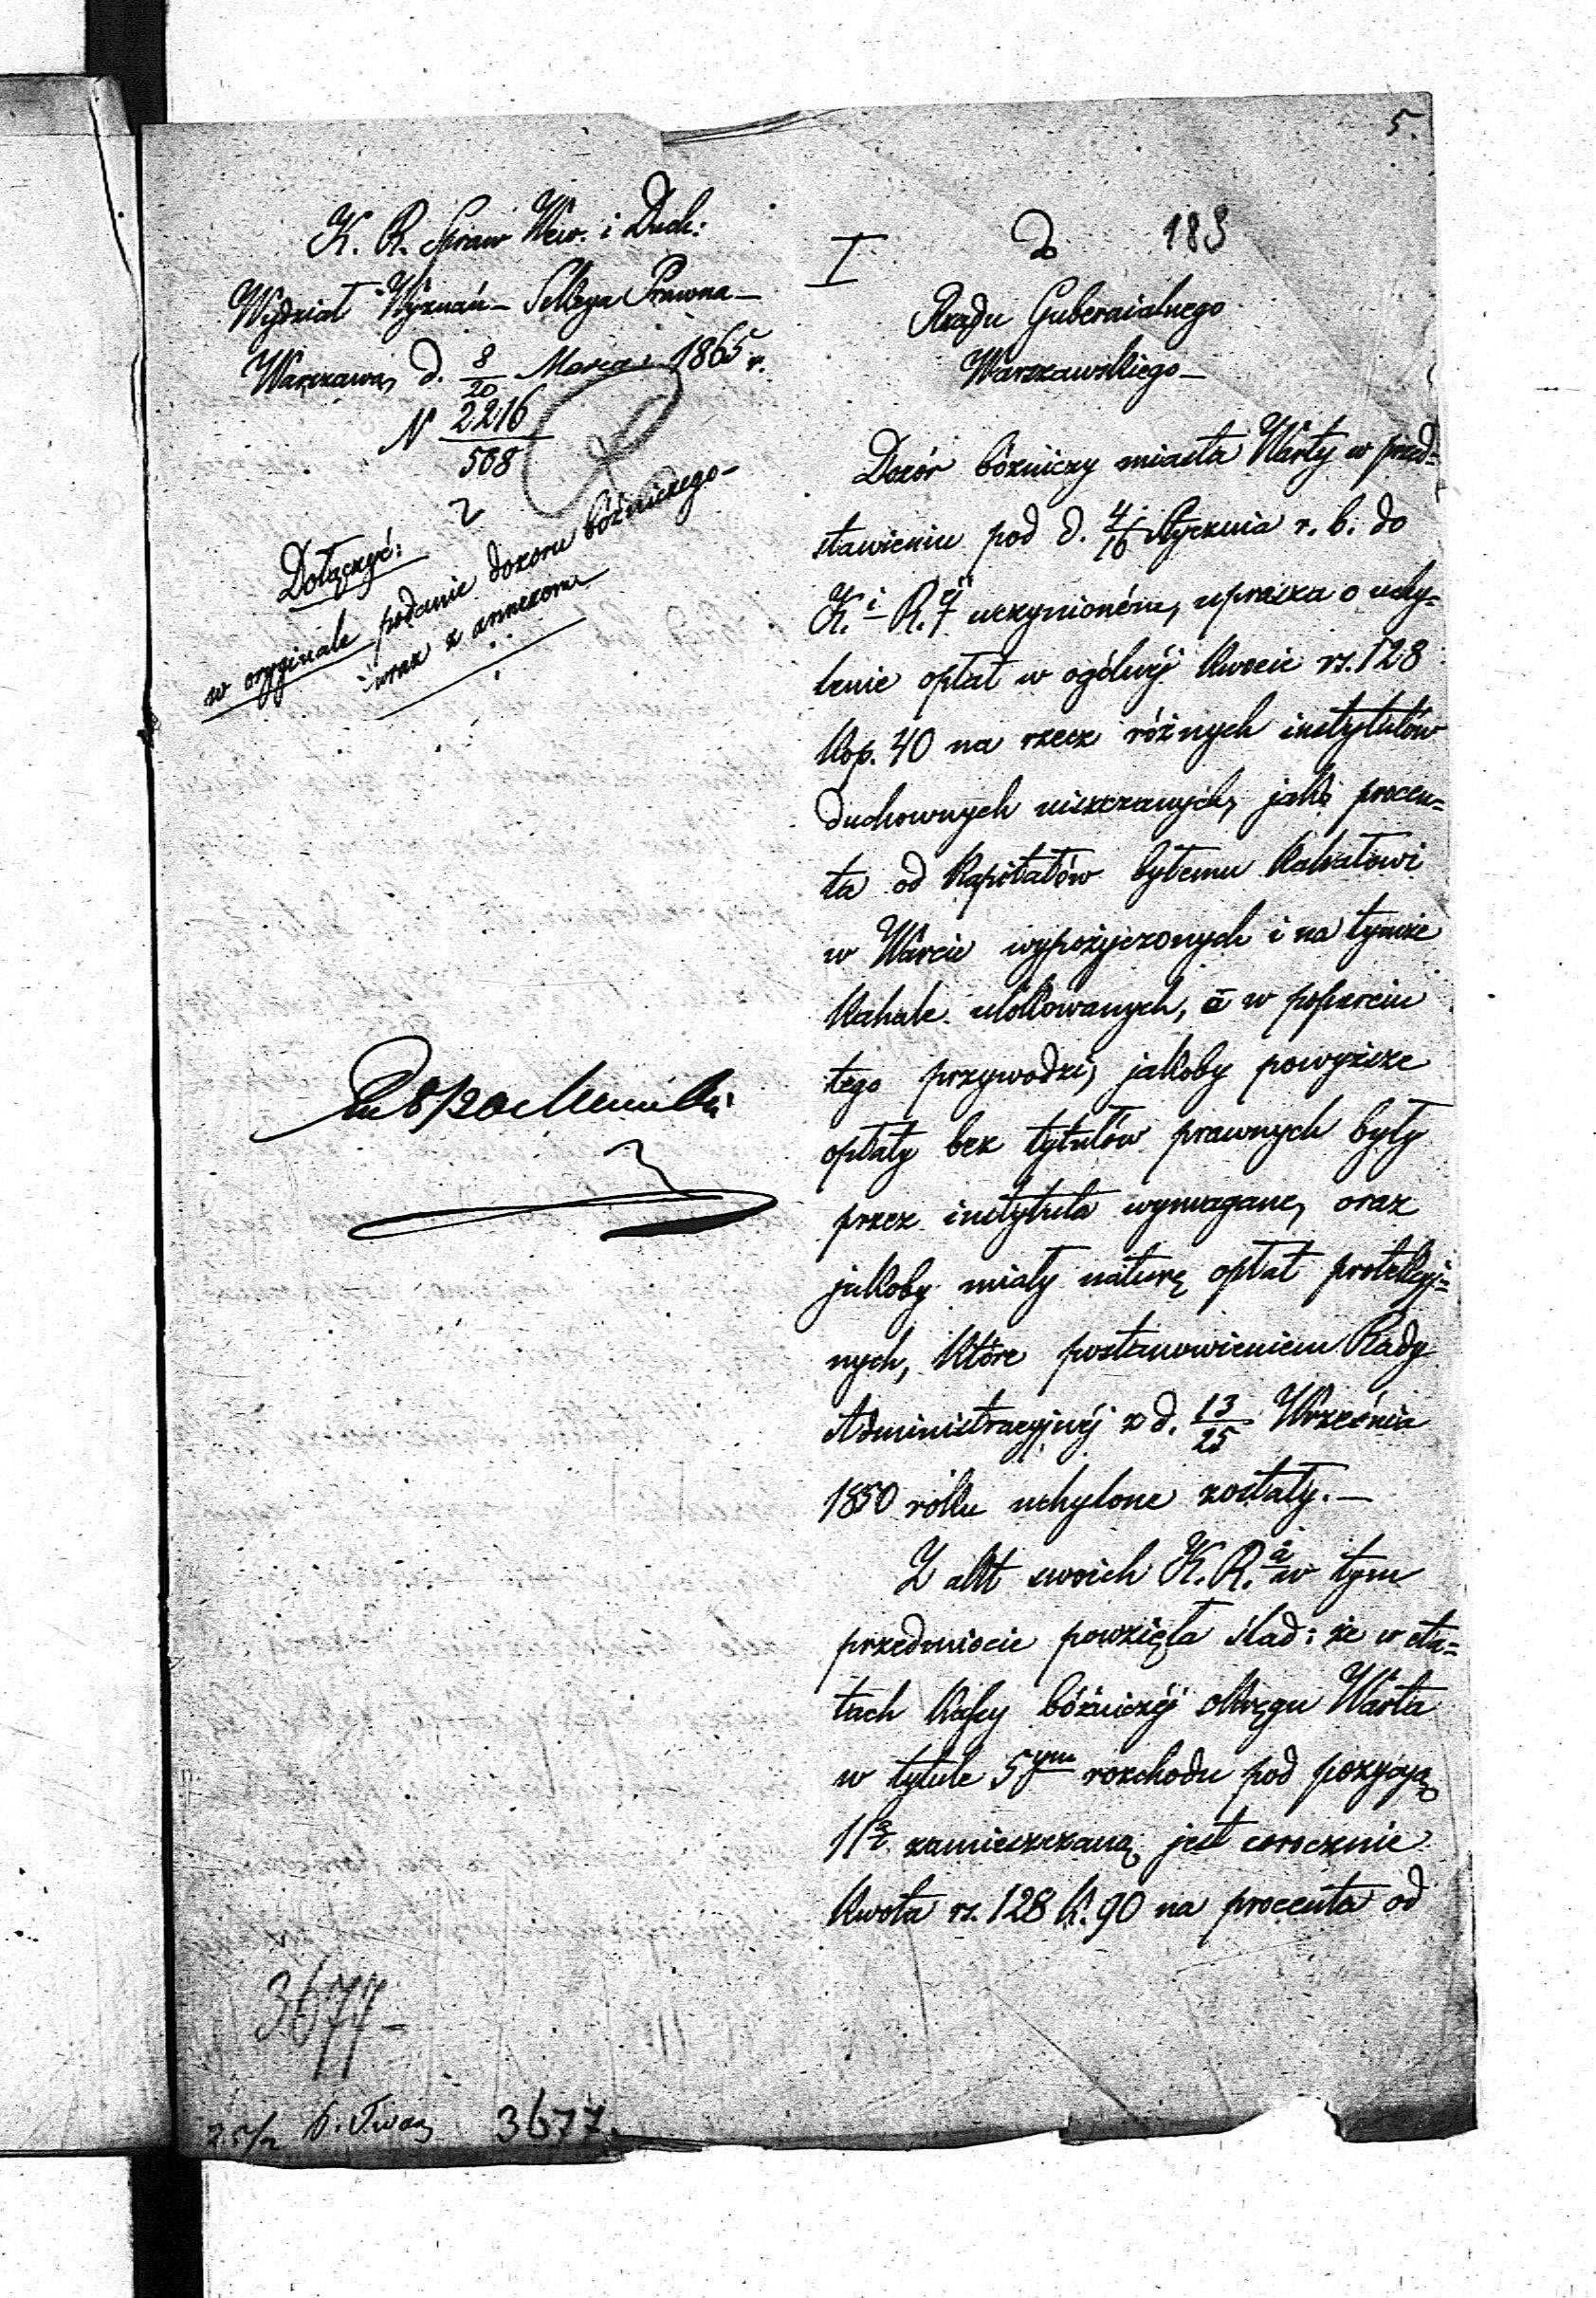 5.
K. R. Spraw Wew. i Duch:
Wydział Wyznań – Sekcya Prawna –
Warszawa, d. 8/20 Marca 1865 r.
N 2216/508
2
Dołączyć:
w oryginale podanie dozoru bóźniczego –
wraz z annexem
3677 –
3677.
I
Do
183
Rządu Gubernialnego
Warszawskiego –
Dozór bóżniczy miasta Warty w przed=
stawieniu pod d. 4/16 Stycznia r. b. do
K. i R. uczynioném, uprasza o uchy=
lenie opłat w ogólnéj kwocie rs. 128
kop. 40 na rzecz różnych instytutów
duchownych uiszczanych, jako procen=
ta od kapitałów byłemu kahałowi
w Warcie wypożyczonych i na tymże
kahale ulokowanych, a w poparciu
tego przywodzi, jakoby powyższe
opłaty bez tytułów prawnych były
przez instytuta wymagane, oraz
jakoby miały naturę opłat protekcyj=
nych, które postanowieniem Rady
Administracyjnéj z d. 13/25 Września
1850 roku uchylone zostały. –
Z akt swoich K. R. a w tym
przedmiocie powzięła ślad: że w eta=
tach kassy bóżniczéj okręgu Warta
w tytule 5ym rozchodu pod pozycyą
11ą zamieszczaną jest corocznie
kwota rs. 128 k. 90 na procenta od